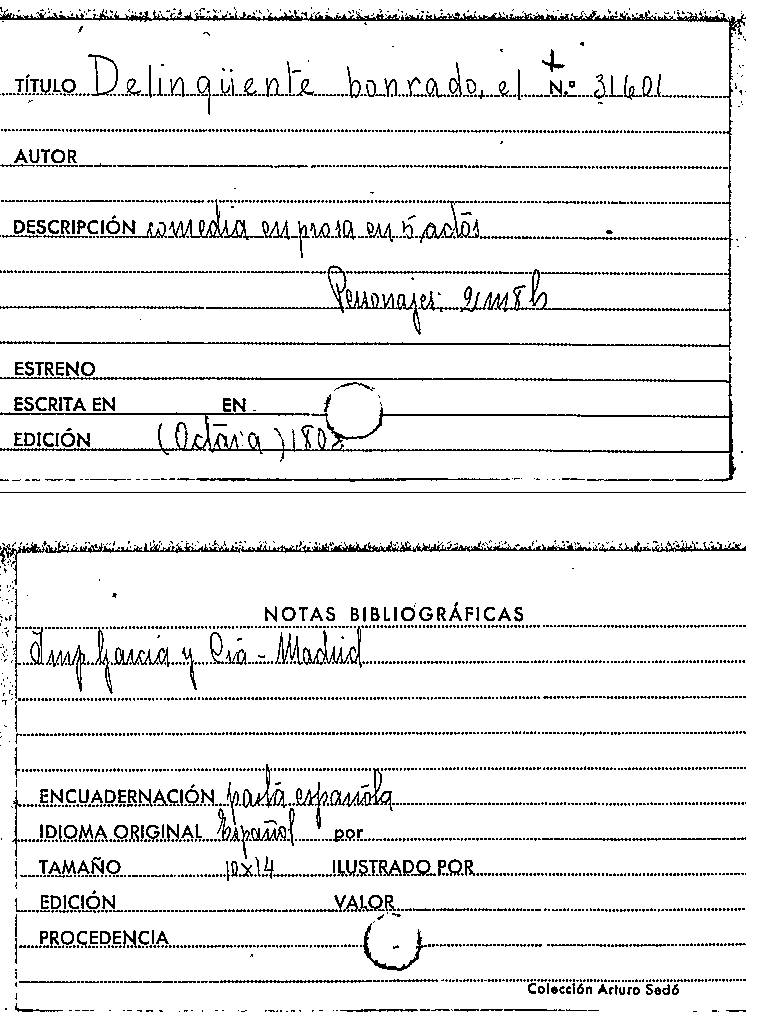 TÍTULO Delinqüente honrado, el N.º 31601
AUTOR
DESCRIPCIÓN comedia en prosa en 5 actos
Personajes: 2 m 8 h
ESTRENO
ESCRITA EN EN
EDICIÓN (Octava)
NOTAS BIBLIOGRÁFICAS
Imp. García y Cía - Madrid
ENCUADERNACIÓN pasta española
IDIOMA ORIGINAL Español por
TAMAÑO 10x14 ILUSTRADO POR
EDICIÓN VALOR
PROCEDENCIA
Colección Arturo Sedó